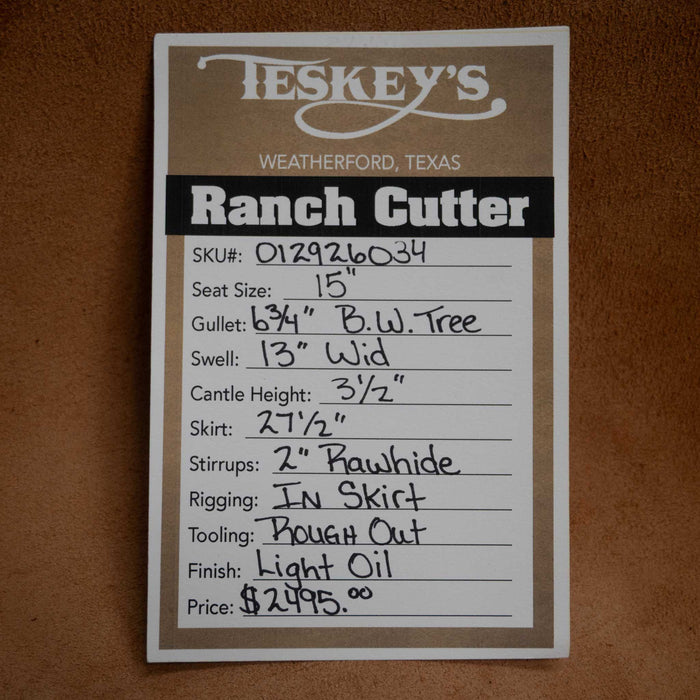 TESKEY'S
WEATHERFORD, TEXAS
Ranch Cutter
SKU#: 012926034
Seat Size: 15"
Gullet: 6 3/4" B.W. Tree
Swell: 13" Wid
Cantle Height: 3 1/2"
Skirt: 27 1/2"
Stirrups: 2" Rawhide
Rigging: In Skirt
Tooling: Rough Out
Finish: Light Oil
Price: $2495.00